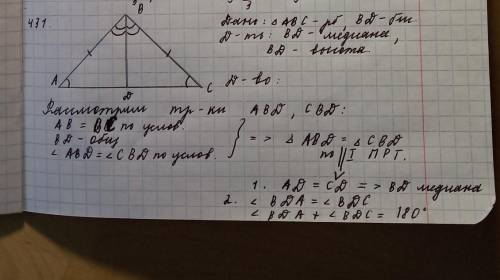 3
431.
B
A
D
C
Дано: △ABC - рб, BD - бис
Д-ть: BD - медиана,
BD - высота.
Д-во:
Рассмотрим тр-ки ABD, CBD:
AB = BC по услов.
BD - общ
∠ABD = ∠CBD по услов.
} => △ABD = △CBD
по I ПРТ.
1. AD = CD => BD медиана
2. ∠BDA = ∠BDC
∠BDA + ∠BDC = 180°